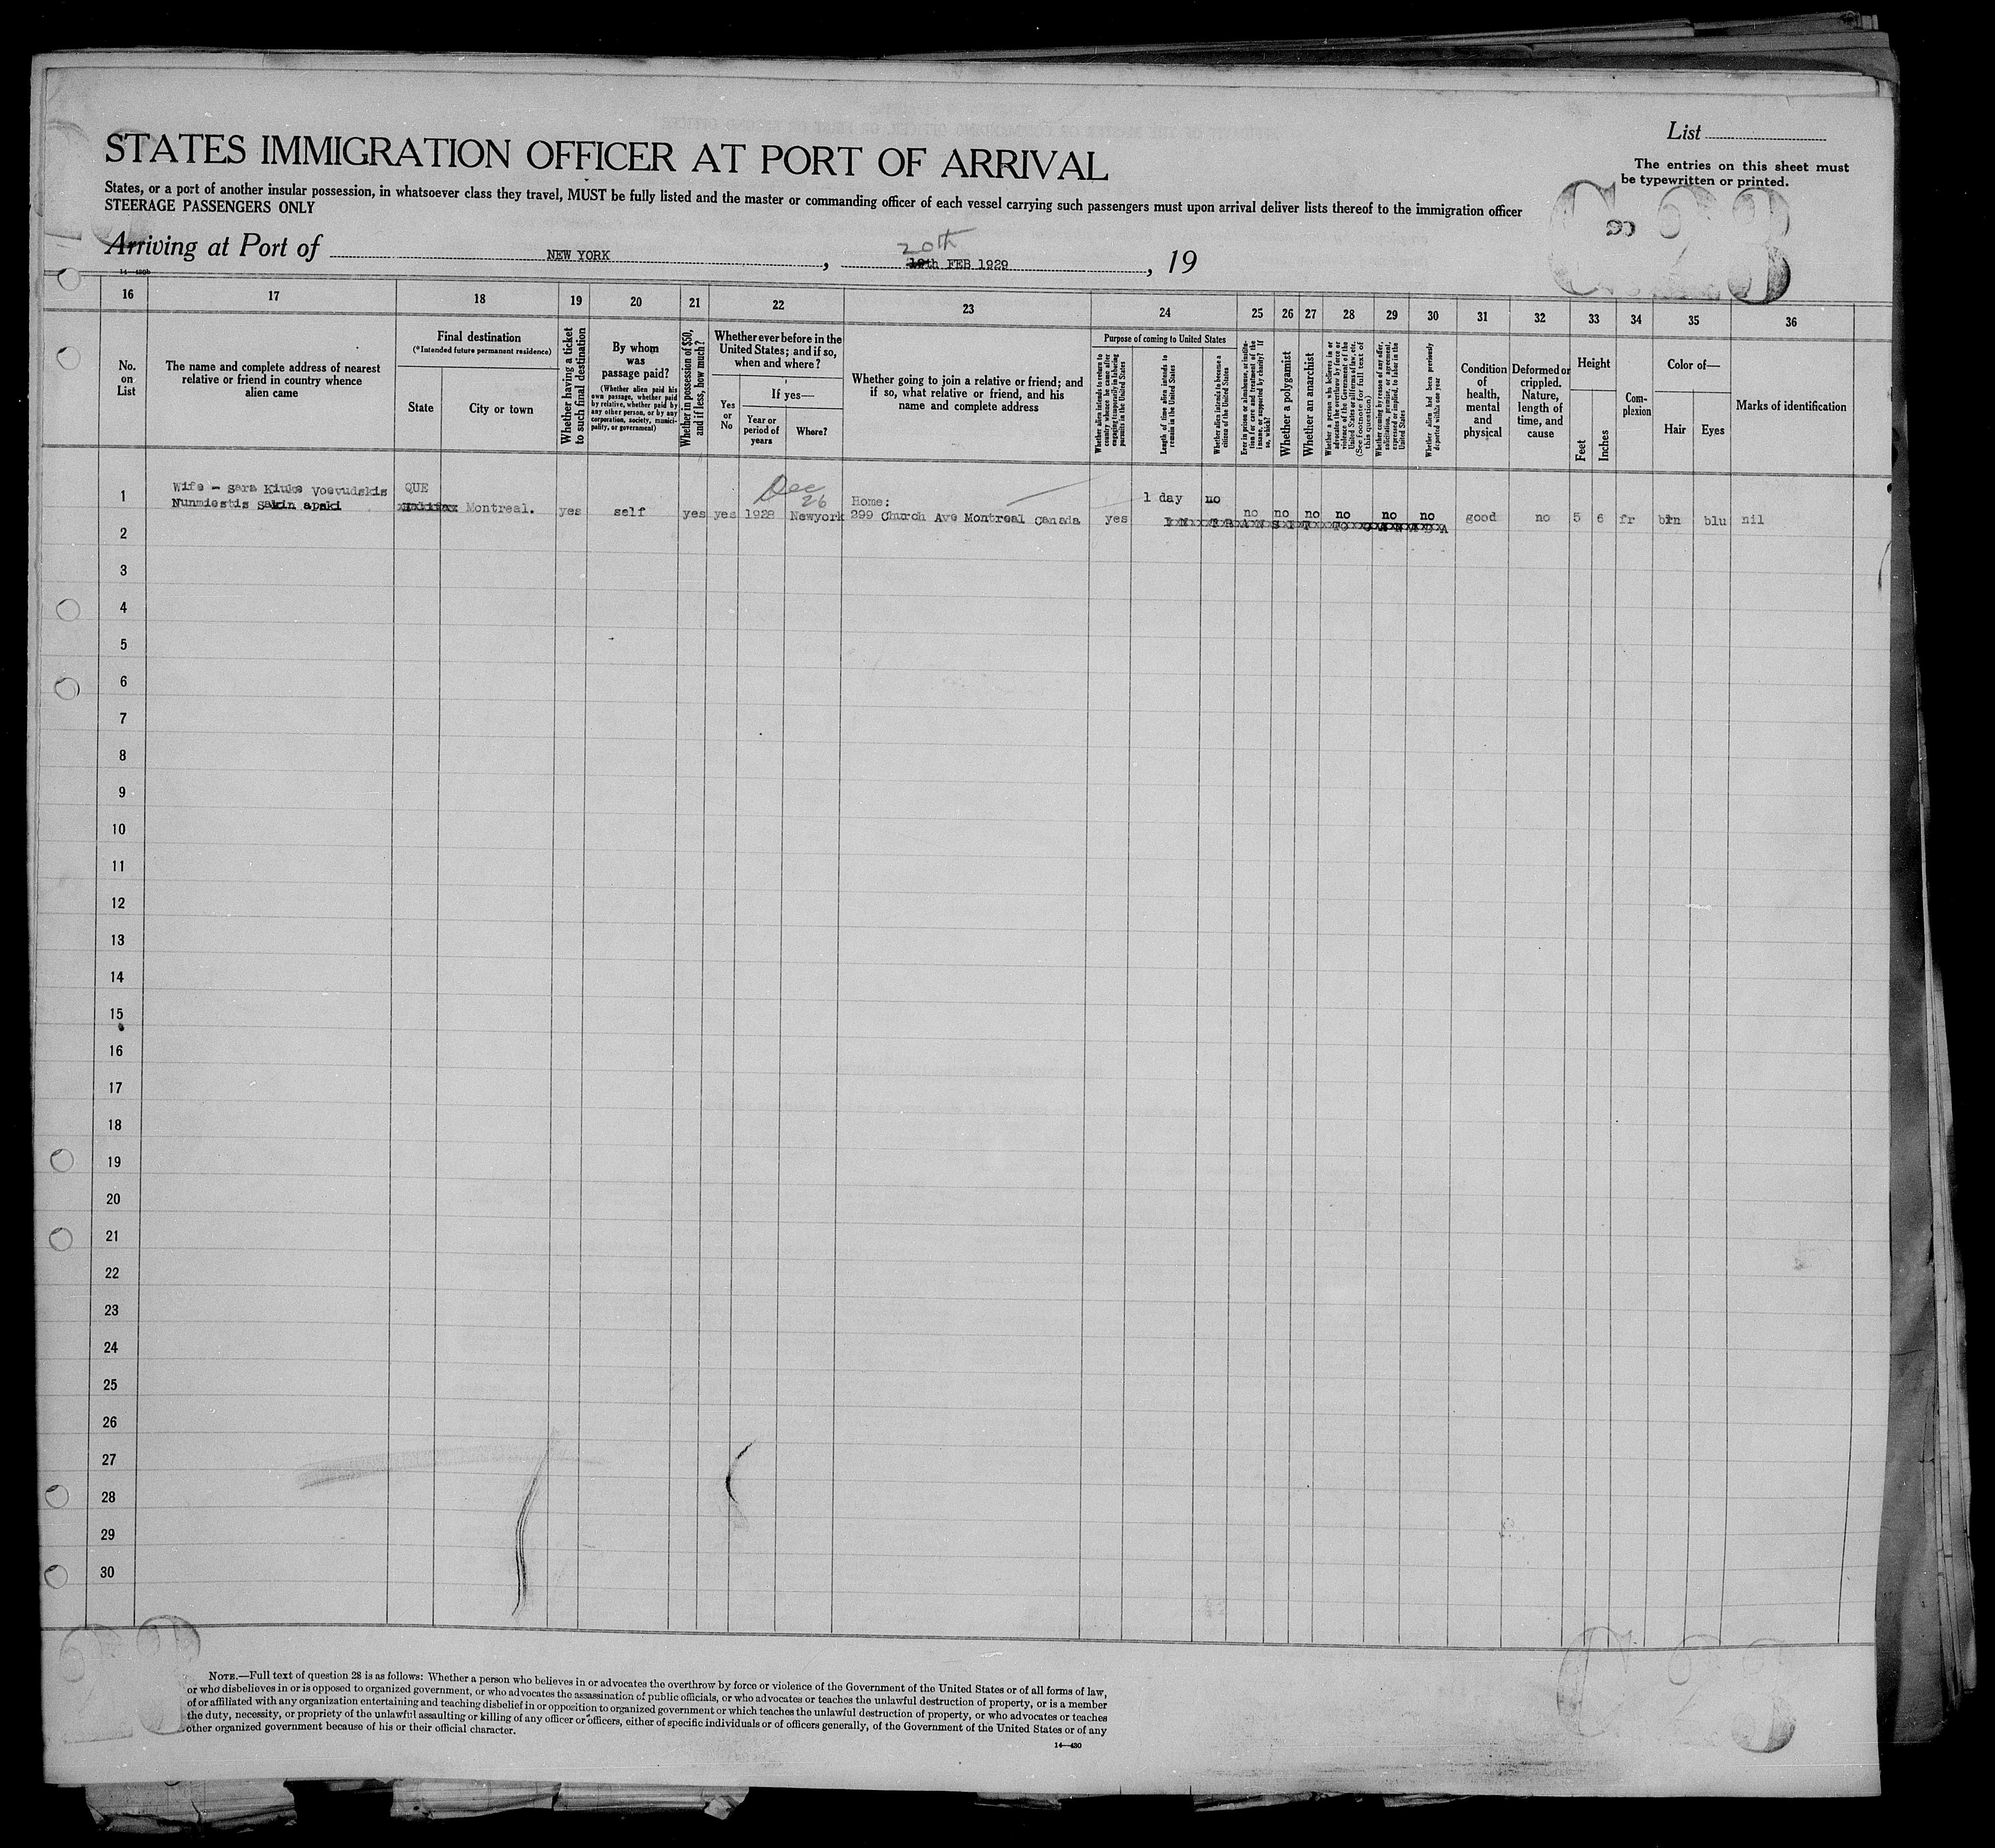 List
The entries on this sheet must
be typewritten or printed.
STATES IMMIGRATION OFFICER AT PORT OF ARRIVAL
States, or a port of another insular possession, in whatsoever class they travel, MUST be fully listed and the master or commanding officer of each vessel carrying such passengers must upon arrival deliver lists thereof to the immigration officer
STEERAGE PASSENGERS ONLY
20th
Arriving at Port of NEW YORK, 19th FEB 1929, 19
14—430b
16 17 18 19 20 21 22 23 24 25 26 27 28 29 30 31 32 33 34 35 36
No. on List
The name and complete address of nearest relative or friend in country whence alien came
Final destination
(*Intended future permanent residence)
State
City or town
Whether having a ticket to such final destination
By whom was passage paid?
(Whether alien paid his own passage, whether paid by relative, whether paid by any other person, or by any corporation, society, municipality, or government)
Whether in possession of $50, and if less, how much?
Whether ever before in the United States; and if so, when and where?
Yes or No
If yes—
Year or period of years
Where?
Whether going to join a relative or friend; and if so, what relative or friend, and his name and complete address
Purpose of coming to United States
Whether alien intends to return to country whence he came after engaging temporarily in laboring pursuits in the United States
Length of time alien intends to remain in the United States
Whether alien intends to become a citizen of the United States
Ever in prison or almshouse, or institution for care and treatment of the insane, or supported by charity? If so, which?
Whether a polygamist
Whether an anarchist
Whether a person who believes in or advocates the overthrow by force or violence of the Government of the United States or all forms of law, etc. (See footnote for full text of this question)
Whether coming by reason of any offer, solicitation, promise, or agreement, expressed or implied, to labor in the United States
Whether alien had been previously deported within one year
Condition of health, mental and physical
Deformed or crippled. Nature, length of time, and cause
Height
Feet
Inches
Complexion
Color of—
Hair
Eyes
Marks of identification
Wife - Sara Kiuke Voevudskis QUE Dec 26 Home: 1 day no
1 Nunmiestis Sakin apski Halifax Montreal. yes self yes yes 1928 Newyork 299 Church Ave Montreal Canada yes no no no no no no good no 5 6 fr brn blu nil
IN TRANSIT TO CANADA
2
3
4
5
6
7
8
9
10
11
12
13
14
15
16
17
18
19
20
21
22
23
24
25
26
27
28
29
30
NOTE.—Full text of question 28 is as follows: Whether a person who believes in or advocates the overthrow by force or violence of the Government of the United States or of all forms of law,
or who disbelieves in or is opposed to organized government, or who advocates the assassination of public officials, or who advocates or teaches the unlawful destruction of property, or is a member
of or affiliated with any organization entertaining and teaching disbelief in or opposition to organized government or which teaches the unlawful destruction of property, or who advocates or teaches
the duty, necessity, or propriety of the unlawful assaulting or killing of any officer or officers, either of specific individuals or of officers generally, of the Government of the United States or of any
other organized government because of his or their official character.
14—430